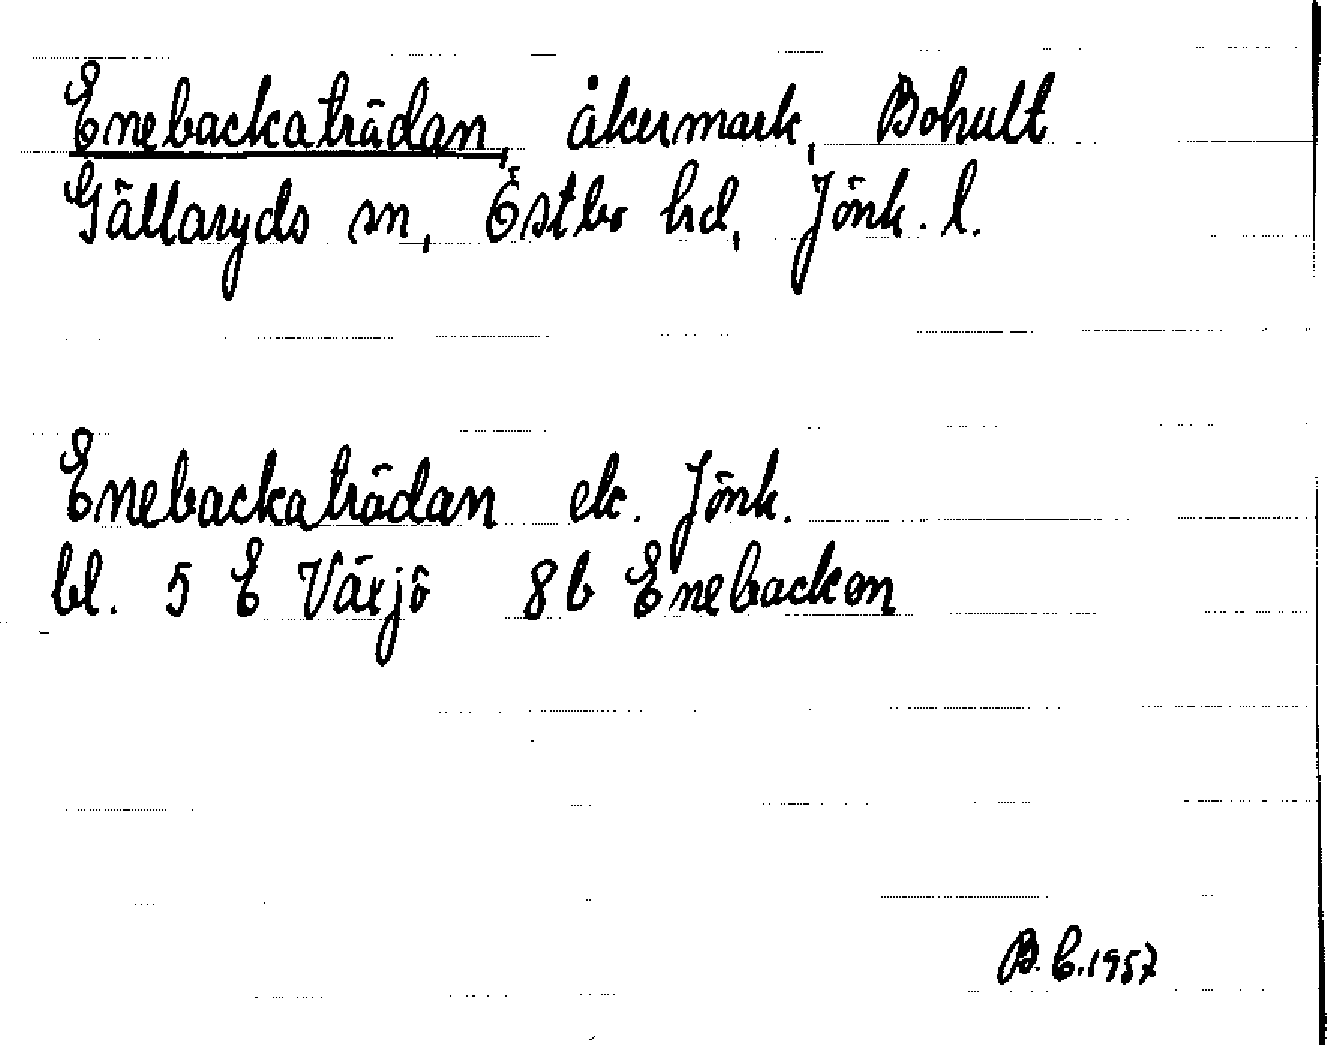 Enebackaträdan, åkermark, Bohult
Gällaryds sn, Östbo hd, Jönk. l.
Enebackaträdan ek. Jönk.
bl. 5 E Växjö 8b Enebacken
B.E.1957